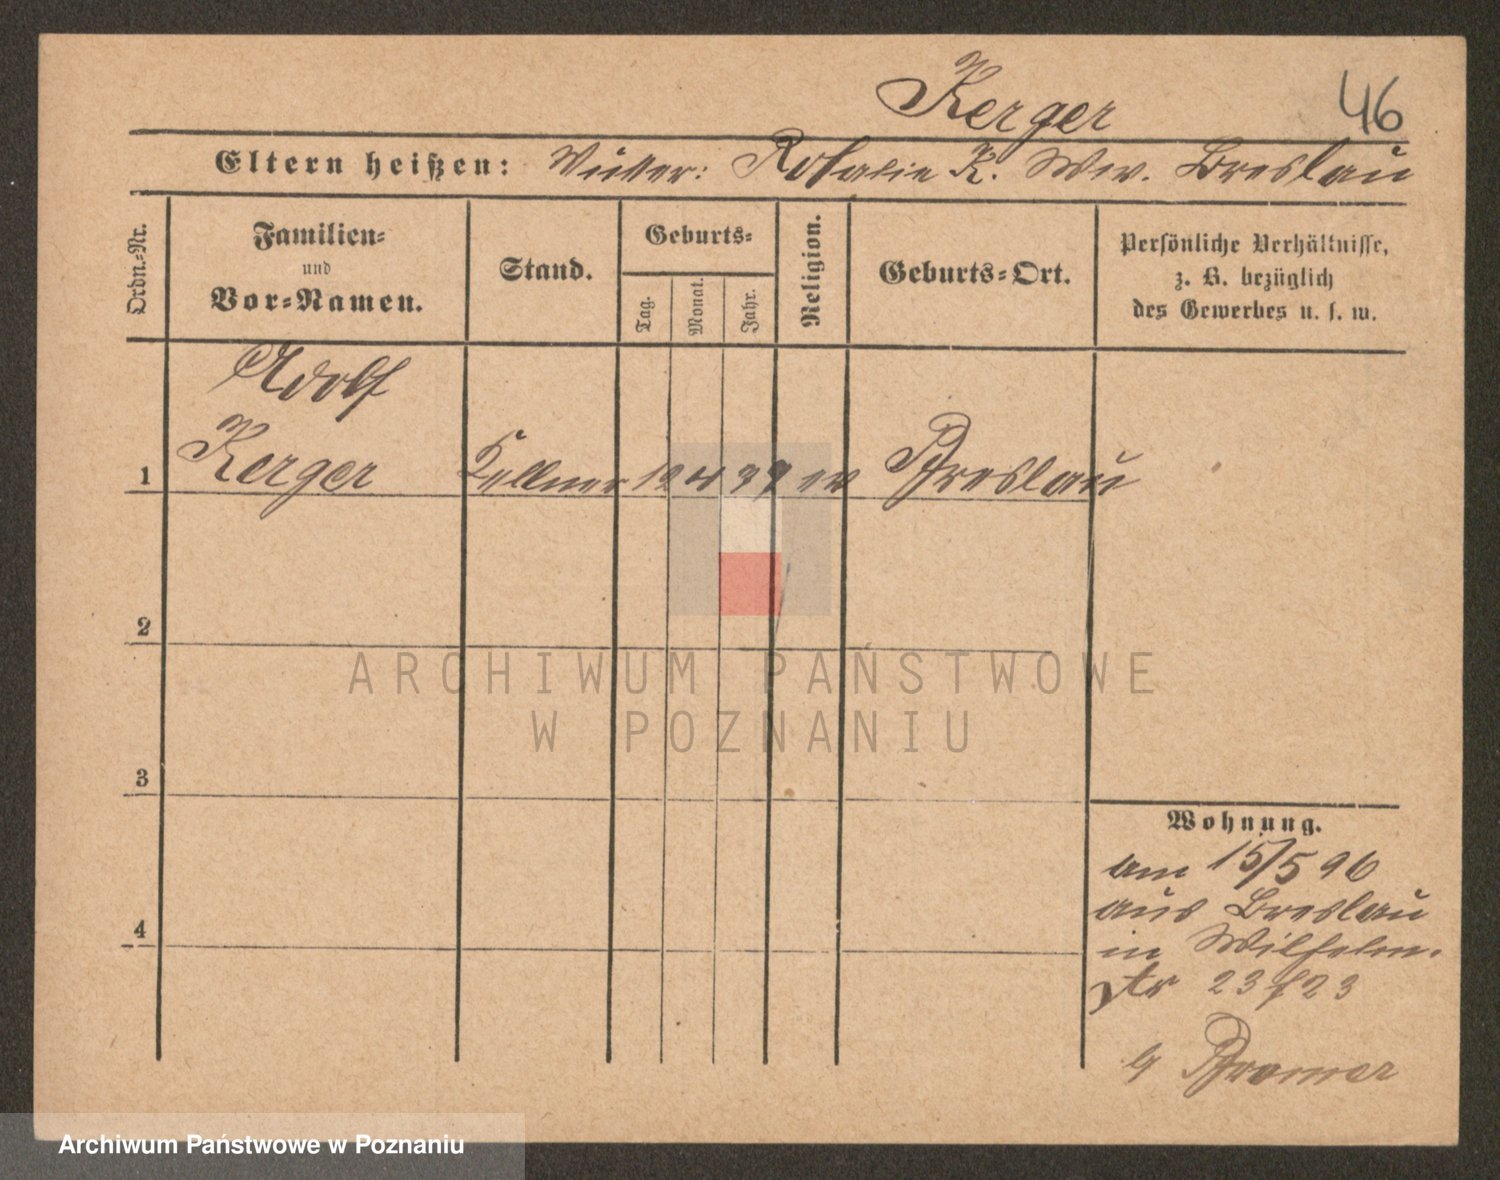 Kerger
46
Eltern heißen: Mutter: Rosalie K. Wwe. Breslau
Ordn.-Nr.
Familien-
und
Vor-Namen.
Stand.
Geburts-
Tag.
Monat.
Jahr.
Religion.
Geburts-Ort.
Persönliche Verhältnisse,
z. B. bezüglich
des Gewerbes u. s. w.
Adolf
1 Kerger Kellner 12 4 39 ev Breslau
2
3
4
Wohnung.
am 15/5 96
aus Breslau
in Wilhelm-
str 23 / 23
ARCHIWUM PAŃSTWOWE
W POZNANIU
Archiwum Państwowe w Poznaniu